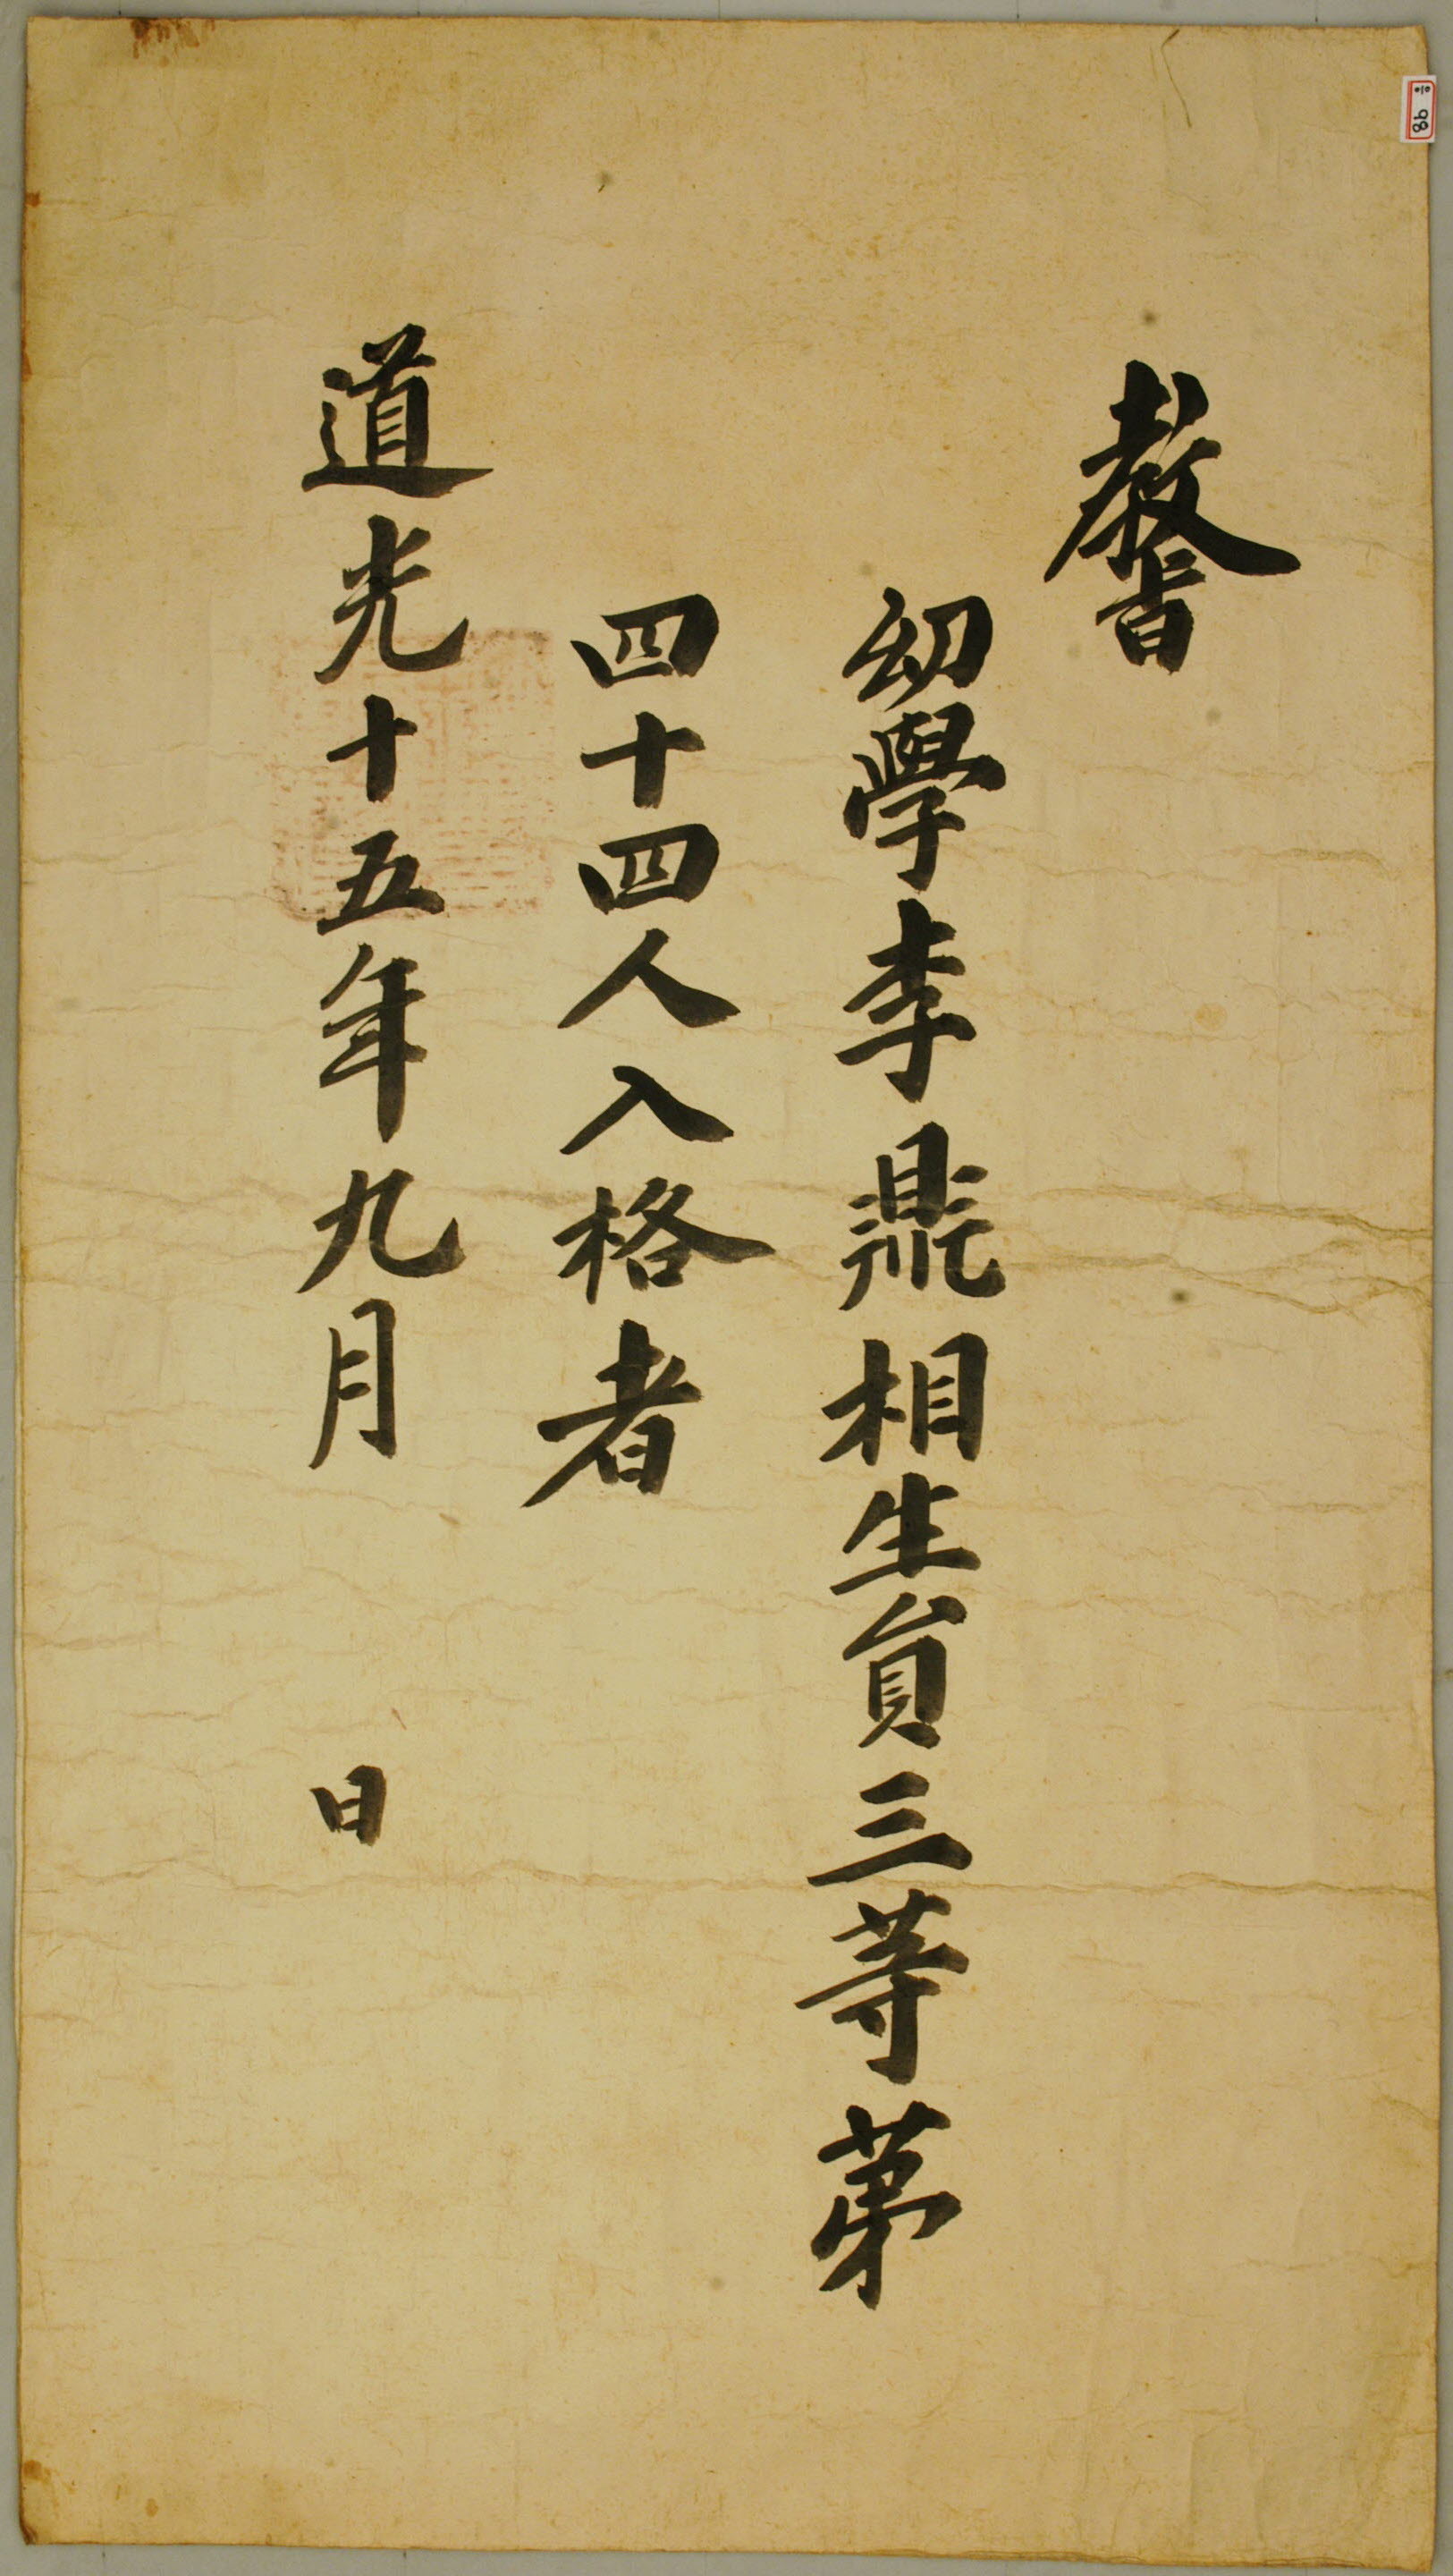 敎旨
幼學李鼎相生員三等第
四十四人入格者
道光十五年九月 日
98